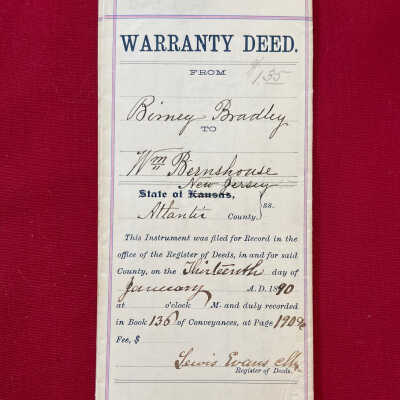 WARRANTY DEED.
1.35
FROM
Birney Bradley
TO
Wm Bernshouse
New Jersey
State of Kansas,
Atlantic County. } ss.
This Instrument was filed for Record in the
office of the Register of Deeds, in and for said
County, on the Thirteenth day of
January A. D. 1890
at o'clock M. and duly recorded
in Book 136 of Conveyances, at Page 190 &c
Fee, $
Lewis Evans Clk.
Register of Deeds.